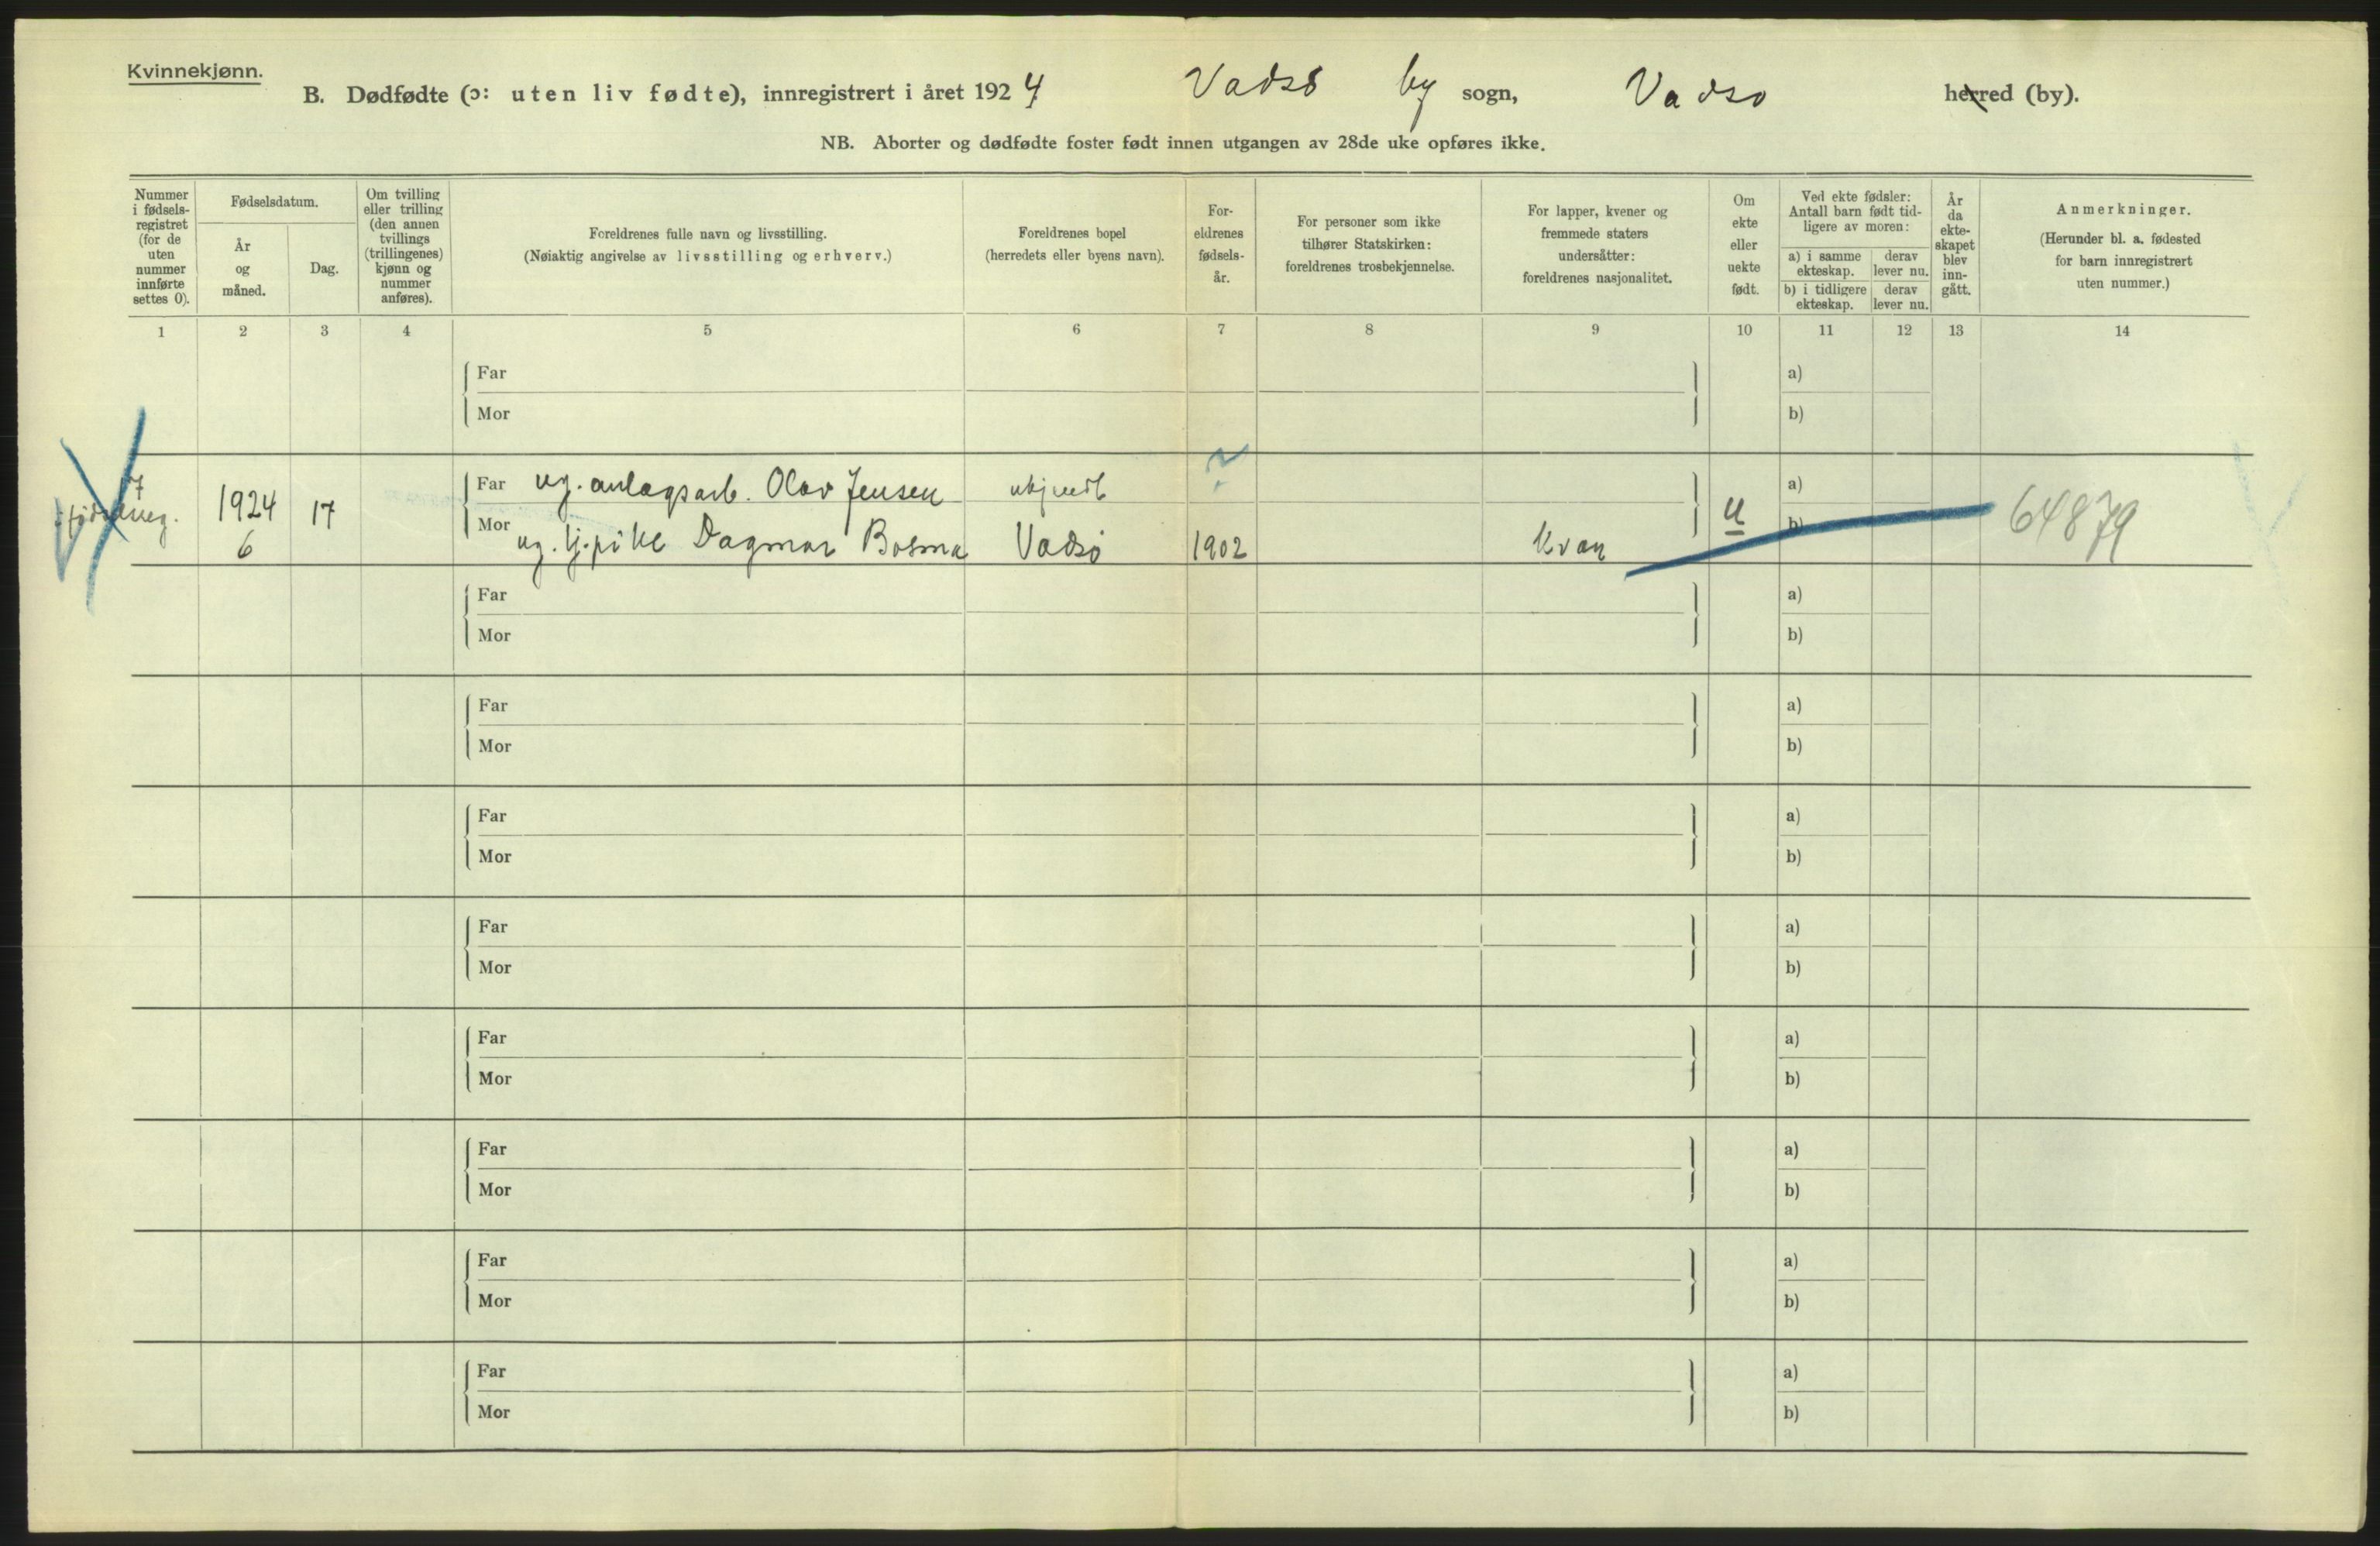 Kvinnekjønn.
B. Dødfødte (ɔ: uten liv fødte), innregistrert i året 1924 Vadsö by sogn, Vadsö herred (by).
NB. Aborter og dødfødte foster født innen utgangen av 28de uke opføres ikke.
Nummer i fødsels-registret (for de uten nummer innførte settes 0).
Fødselsdatum.
År og måned.
Dag.
Om tvilling eller trilling (den annen tvillings (trillingenes) kjønn og nummer anføres).
Foreldrenes fulle navn og livsstilling.
(Nøiaktig angivelse av livsstilling og erhverv.)
Foreldrenes bopel
(herredets eller byens navn).
For-eldrenes fødsels-år.
For personer som ikke tilhører Statskirken: foreldrenes trosbekjennelse.
For lapper, kvener og fremmede staters undersåtter: foreldrenes nasjonalitet.
Om ekte eller uekte født.
Ved ekte fødsler: Antall barn født tid-ligere av moren:
a) i samme ekteskap.
derav lever nu.
b) i tidligere ekteskap.
derav lever nu.
År da ekte-skapet blev inn-gått.
Anmerkninger.
(Herunder bl. a. fødested for barn innregistrert uten nummer.)
1 2 3 4 5 6 7 8 9 10 11 12 13 14
Far a)
Mor b)
7
1924 17 Far ug. anlagsarb. Olav Jensen ukjendt ? u a)
6 Mor ug. tj.pike Dagmar Bosma Vadsö 1902 kvæn b) 64879
Far a)
Mor b)
Far a)
Mor b)
Far a)
Mor b)
Far a)
Mor b)
Far a)
Mor b)
Far a)
Mor b)
Far a)
Mor b)
Far a)
Mor b)